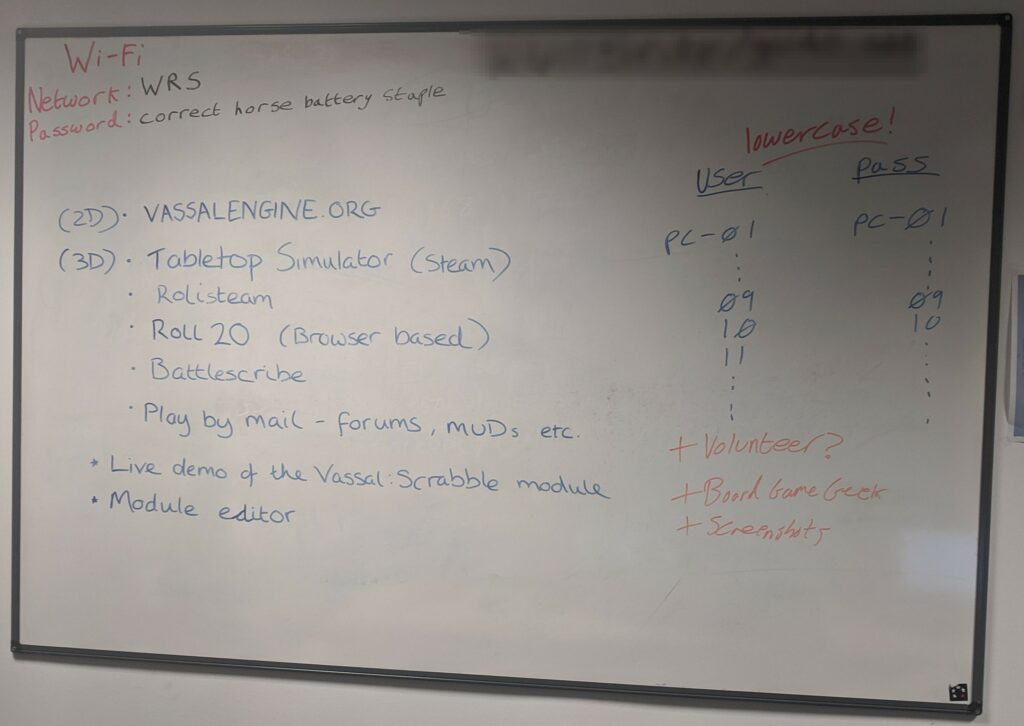 Wi-Fi
Network: WRS
Password: correct horse battery staple
(2D) · VASSALENGINE.ORG
(3D) · Tabletop Simulator (Steam)
· Rolisteam
· Roll 20 (Browser based)
· Battlescribe
· Play by mail - forums, MUDs etc.
* Live demo of the Vassal: Scrabble module
* Module editor
lowercase!
User pass
pc-01 pc-01
09 09
10 10
11
+ Volunteer?
+ Board Game Geek
+ Screenshots